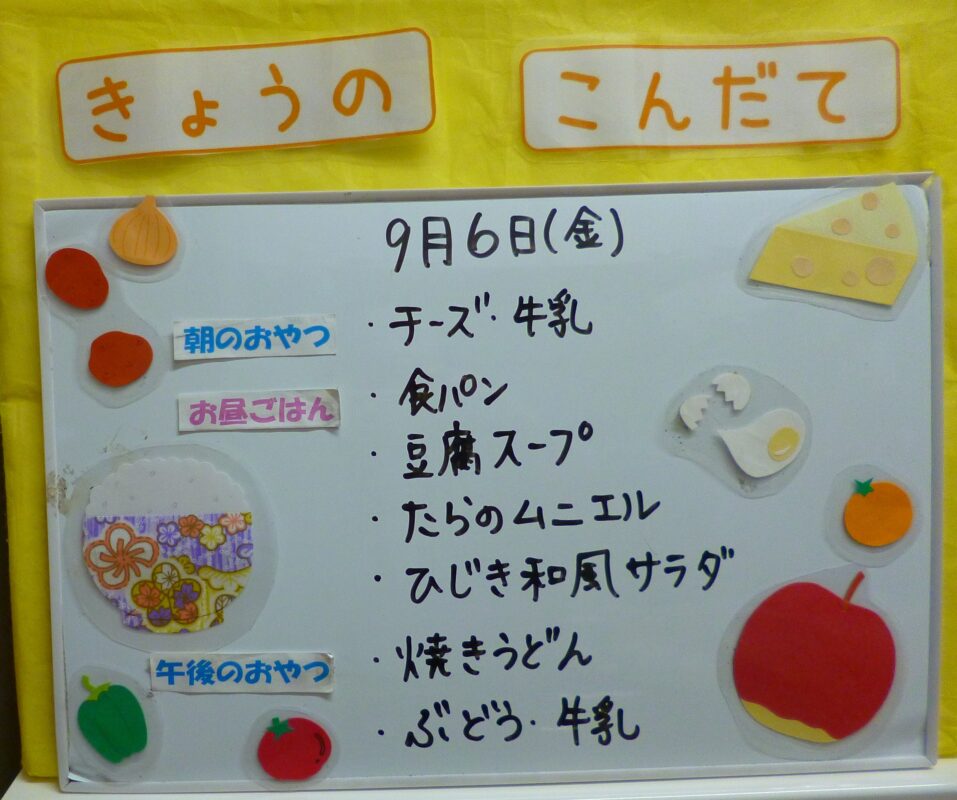 きょうの こんだて
9月6日(金)
朝のおやつ ・チーズ・牛乳
お昼ごはん ・食パン
・豆腐スープ
・たらのムニエル
・ひじき和風サラダ
午後のおやつ ・焼きうどん
・ぶどう・牛乳